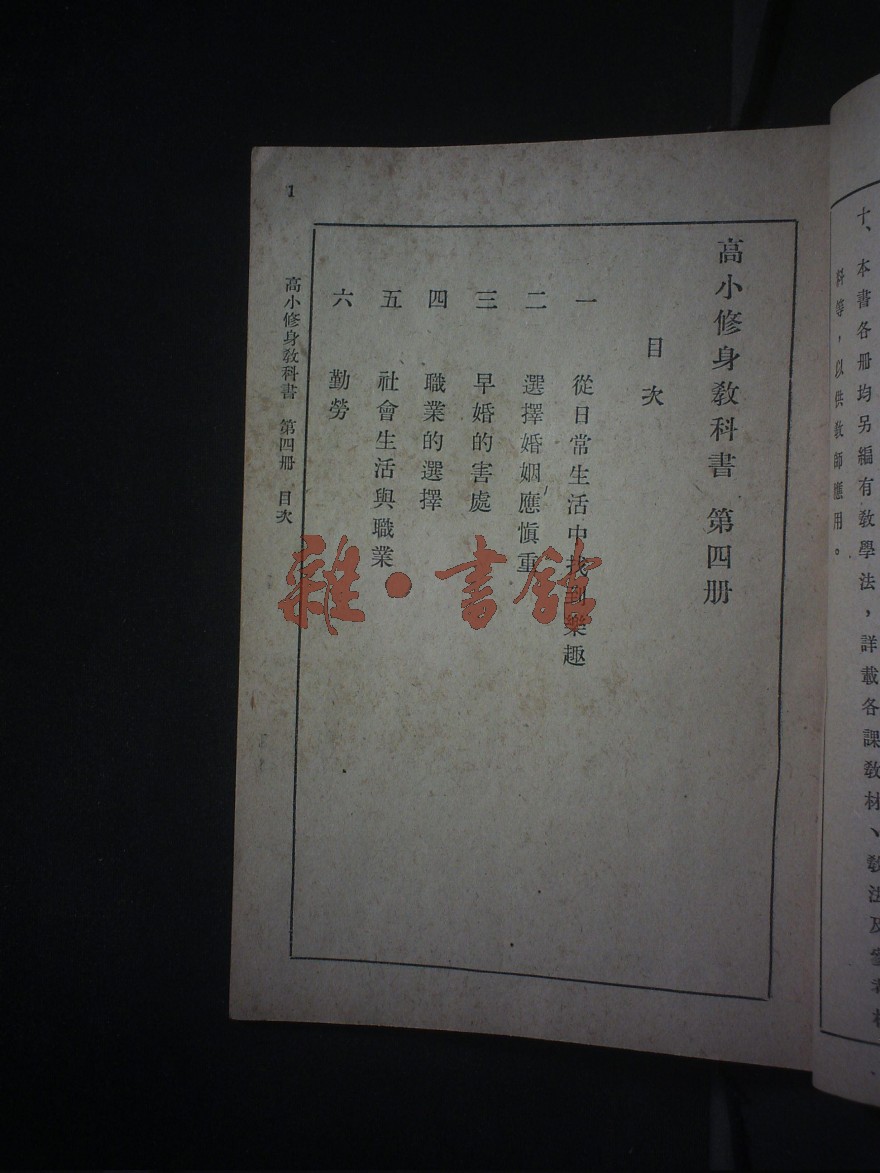 十、本書各冊均另編有教學法，詳載各課教材、教法及參考材
料等，以供教師應用。
高小修身教科書 第四册
目次
一 從日常生活中找到樂趣
二 選擇婚姻應慎重
三 早婚的害處
四 職業的選擇
五 社會生活與職業
六 勤勞
高小修身教科書 第四册 目次
1
雜·書館